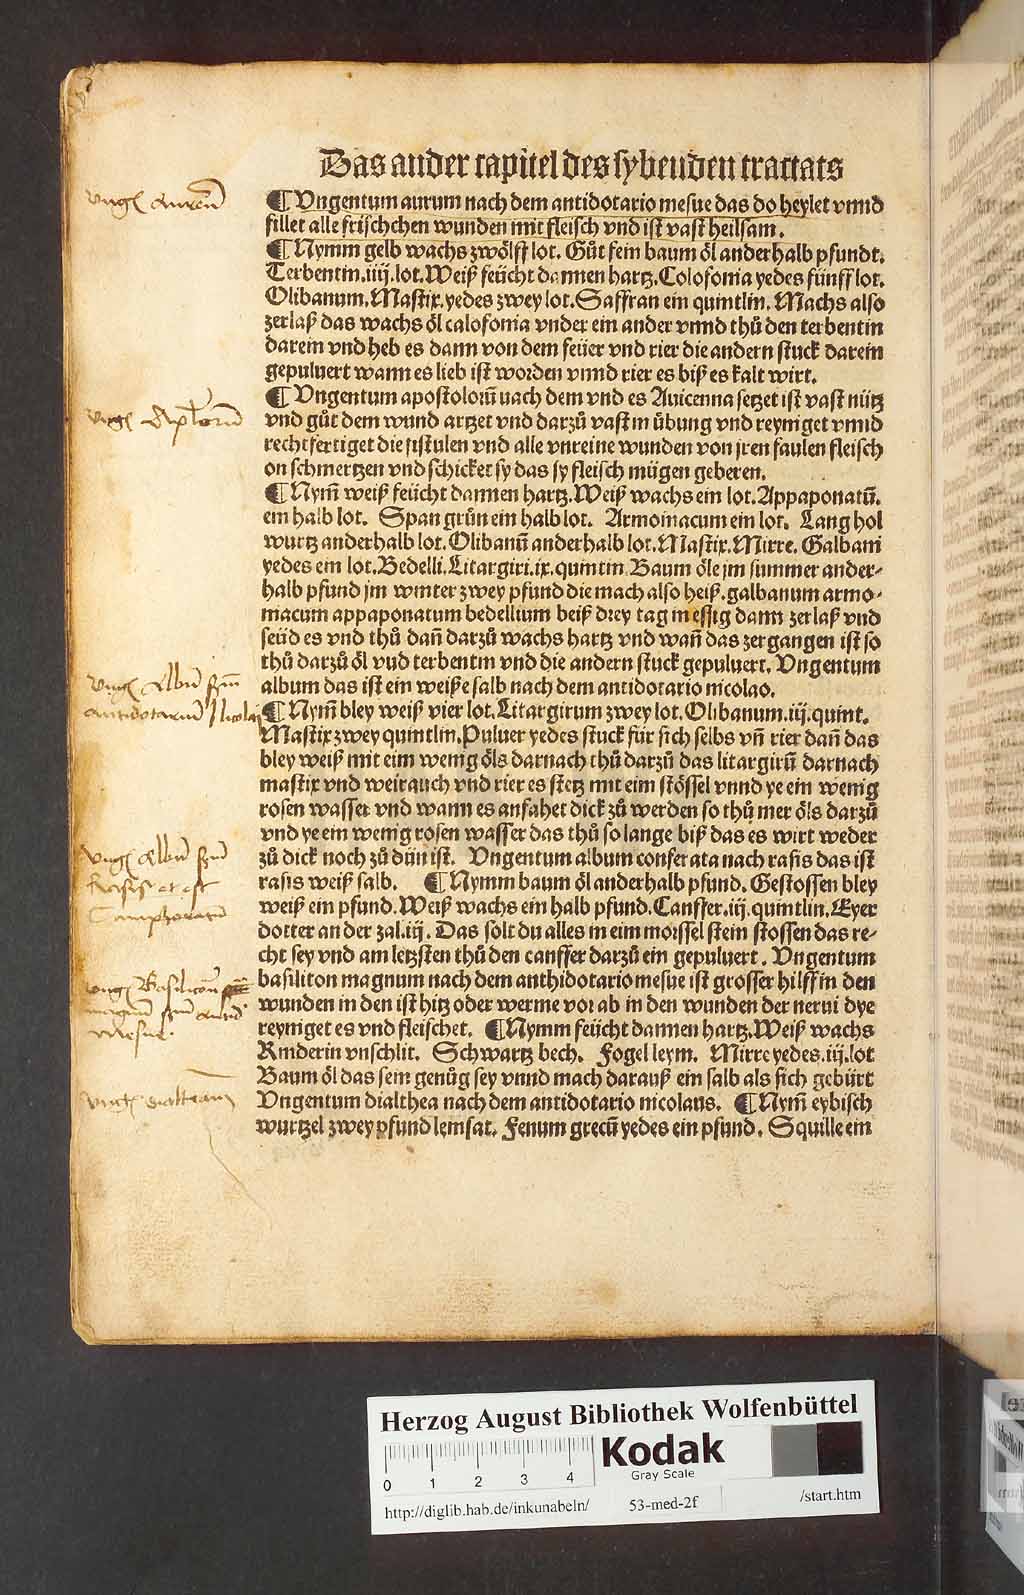 Das ander capitel des sybenden tractats
¶ Vngentum aurum nach dem antidotario mesue das do heylet vnnd
fillet alle frischchen wunden mit fleisch vnd ist vast heilsam.
¶ Nymm gelb wachs zwölff lot. Gůt fein baum öl anderhalb pfundt.
Terbentin .iiij. lot. Weiß feücht dannen hartz. Colofonia yedes fünff lot.
Olibanum. Mastix. yedes zwey lot. Saffran ein quintlin. Machs also
zerlaß das wachs öl calofonia vnder ein ander vnnd thů den terbentin
darein vnd heb es dann von dem feüer vnd rier die andern stuck darein
gepuluert wann es lieb ist worden vnnd rier es biß es kalt wirt.
¶ Vngentum apostoloꝛū nach dem vnd es Auicenna setzet ist vast nütz
vnd gůt dem wund artzet vnd darzů vast in übung vnd reyniget vnnd
rechtfertiget die fistulen vnd alle vnreine wunden von jren faulen fleisch
on schmertzen vnd schicket sy das sy fleisch mügen geberen.
¶ Nym̄ weiß feücht dannen hartz. Weiß wachs ein lot. Appaponatū.
ein halb lot. Span grůn ein halb lot. Armoniacum ein lot. Lang hol
wurtz anderhalb lot. Olibanū anderhalb lot. Mastix. Mirre. Galbani
yedes ein lot. Bedelli. Litargiri. ix. quintin. Baum öle jm summer ander⸗
halb pfund jm winter zwey pfund die mach also heiß. galbanum armo⸗
niacum appaponatum bedellium beiß drey tag in essig dann zerlaß vnd
seüd es vnd thů dan̄ darzů wachs hartz vnd wan̄ das zergangen ist so
thů darzů öl vnd terbentin vnd die andern stuck gepuluert. Vngentum
album das ist ein weiße salb nach dem antidotario nicolao.
¶ Nym̄ bley weiß vier lot. Litargirum zwey lot. Olibanum .iij. quint.
Mastix zwey quintlin. Puluer yedes stuck für sich selbs vn̄ rier dan̄ das
bley weiß mit eim wenig öls darnach thů darzů das litargirū darnach
mastix vnd weirauch vnd rier es stetz mit eim stössel vnnd ye ein wenig
rosen wasser vnd wann es anfahet dick zů werden so thů mer öls darzů
vnd ye ein wenig rosen wasser das thů so lange biß das es wirt weder
zů dick noch zů dün ist. Vngentum album conferata nach rasis das ist
rasis weiß salb. ¶ Nymm baum öl anderhalb pfund. Gestossen bley
weiß ein pfund. Weiß wachs ein halb pfund. Canffer .iij. quintlin. Eyer
dotter an der zal .iij. Das solt du alles in eim morssel stein stossen das re⸗
cht sey vnd am letzsten thů den canffer darzů ein gepuluert. Vngentum
basiliton magnum nach dem anthidotario mesue ist grosser hilff in den
wunden in den ist hitz oder werme vor ab in den wunden der nerui dye
reyniget es vnd fleischet. ¶ Nymm feücht dannen hartz. Weiß wachs
Rinderin vnschlit. Schwartz bech. Fogel leym. Mirre yedes .iij. lot
Baum öl das sein genůg sey vnnd mach darauß ein salb als sich gebürt
Vngentum dialthea nach dem antidotario nicolaus. ¶ Nym̄ eybisch
wurtzel zwey pfund leinsat. Fenum grecū yedes ein pfund. Squille ein
vngͭ aureū
vngͭ Aplorū
vngͭ Albū scdm
antidotariū Nicolai
vngͭ Albū scdm
Rasis et est
Camphoratū
vngͭ Basilicon
magnū scdm antid
Mesue.
vngͭ dialteam
Herzog August Bibliothek Wolfenbüttel
0 1 2 3 4
Kodak
Gray Scale
http://diglib.hab.de/inkunabeln/ 53-med-2f /start.htm